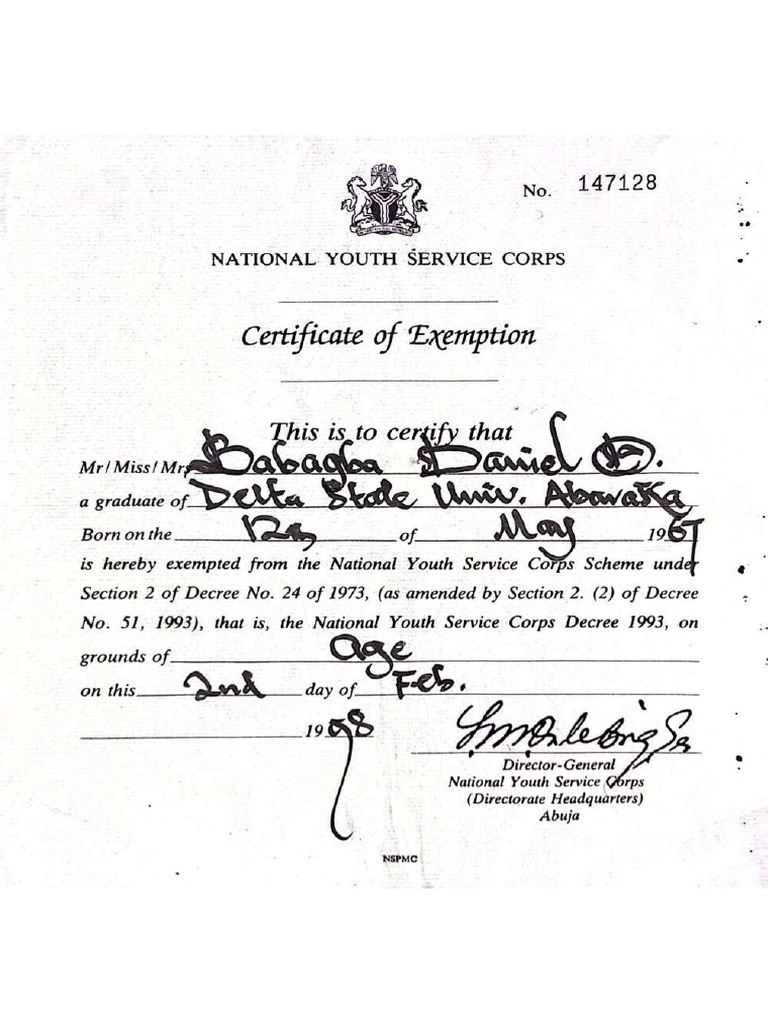 No. 147128
NATIONAL YOUTH SERVICE CORPS
Certificate of Exemption
This is to certify that
Mr/Miss/Mrs Babagba Daniel O.
a graduate of Delta State Univ. Abaraka
Born on the 12th of May 1967
is hereby exempted from the National Youth Service Corps Scheme under
Section 2 of Decree No. 24 of 1973, (as amended by Section 2. (2) of Decree
No. 51, 1993), that is, the National Youth Service Corps Decree 1993, on
grounds of age
on this 2nd day of Feb.
1998
Director-General
National Youth Service Corps
(Directorate Headquarters)
Abuja
NSPMC